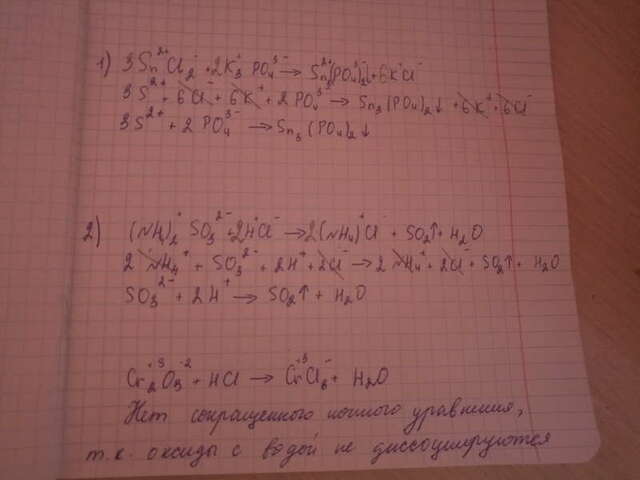 1) 3Sn²⁺Cl₂⁻ + 2K₃⁺PO₄³⁻ → Sn₃²⁺(PO₄)₂³⁻ + 6K⁺Cl⁻
3S²⁺ + 6Cl⁻ + 6K⁺ + 2PO₄³⁻ → Sn₃(PO₄)₂↓ + 6K⁺ + 6Cl⁻
3S²⁺ + 2PO₄³⁻ → Sn₃(PO₄)₂↓
2) (NH₄)₂⁺SO₃²⁻ + 2H⁺Cl⁻ → 2(NH₄)⁺Cl⁻ + SO₂↑ + H₂O
2NH₄⁺ + SO₃²⁻ + 2H⁺ + 2Cl⁻ → 2NH₄⁺ + 2Cl⁻ + SO₂↑ + H₂O
SO₃²⁻ + 2H⁺ → SO₂↑ + H₂O
Cr₂⁺³O₃⁻² + HCl → Cr⁺³Cl₃⁻ + H₂O
Нет сокращенного ионного уравнения,
т.к. оксиды с водой не диссоциируются